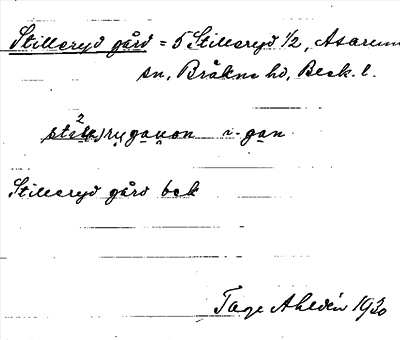 Stilleryd gård = 5 Stilleryd 1/2, Asarum
sn, Bräkne hd, Blek. l.
i- gan
Stilleryd gård bek
Tage Ahldén 1930